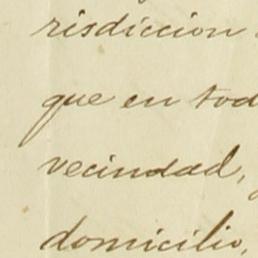 risdiccion
que en tod
vecindad,
domicilio,